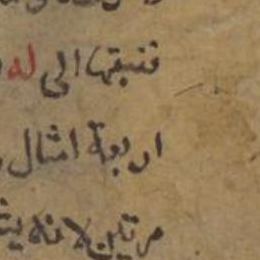 فنسبتها الى له
اربعة امثال
مرتين لانه